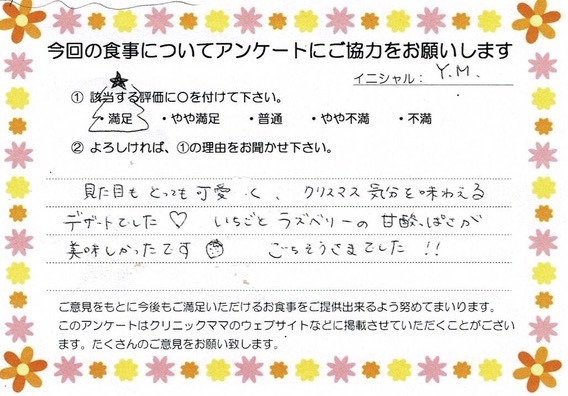 今回の食事についてアンケートにご協力をお願いします
イニシャル： Y.M.
① 該当する評価に○を付けて下さい。
・満足 ・やや満足 ・普通 ・やや不満 ・不満
② よろしければ、①の理由をお聞かせ下さい。
見た目もとっても可愛く、クリスマス気分を味わえる
デザートでした♡ いちごとラズベリーの甘酸っぱさが
美味しかったです ごちそうさまでした!!
ご意見をもとに今後もご満足いただけるお食事をご提供出来るよう努めてまいります。
このアンケートはクリニックママのウェブサイトなどに掲載させていただくことがござい
ます。たくさんのご意見をお願い致します。